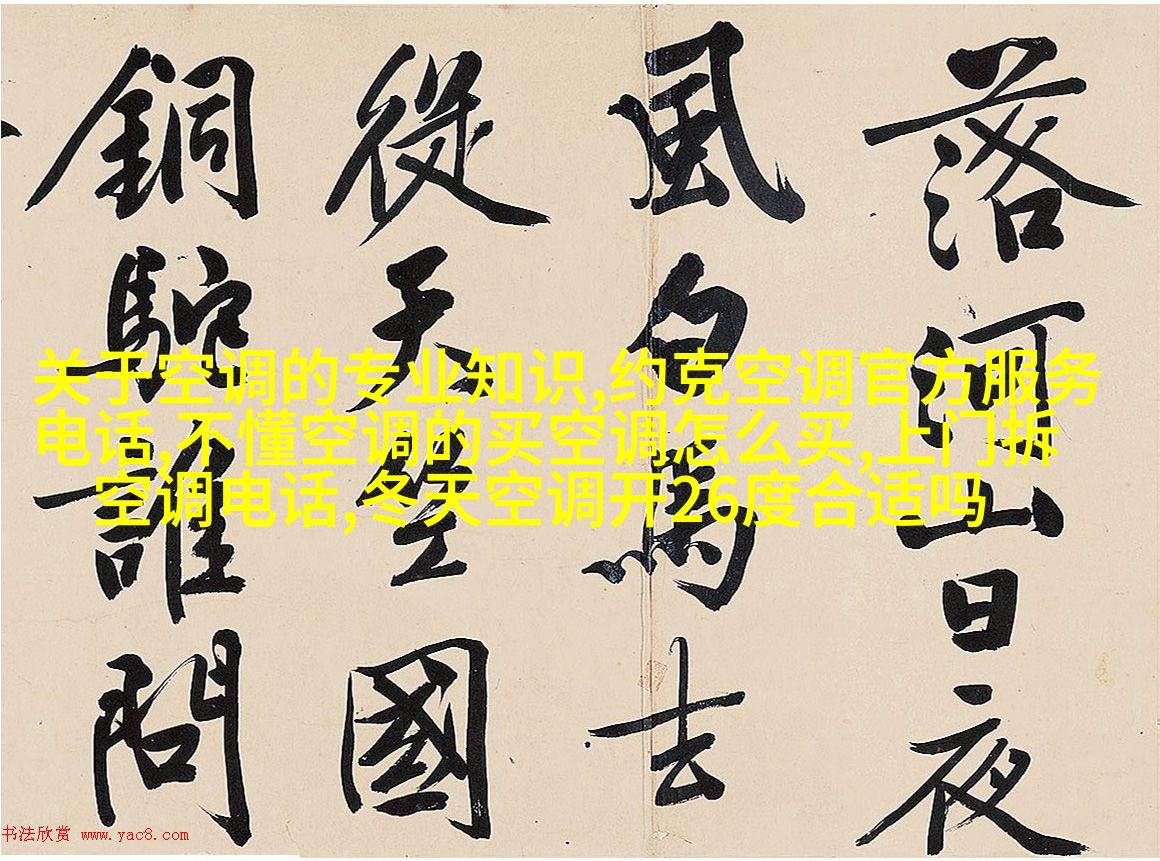 落河山日夜
風白馬去
從天竺國
銅駝誰問
关于空调的专业知识,约克空调官方服务
电话,不懂空调的买空调怎么买,上门拆
空调电话,冬天空调开26度合适吗
书法欣赏 www.yac8.com